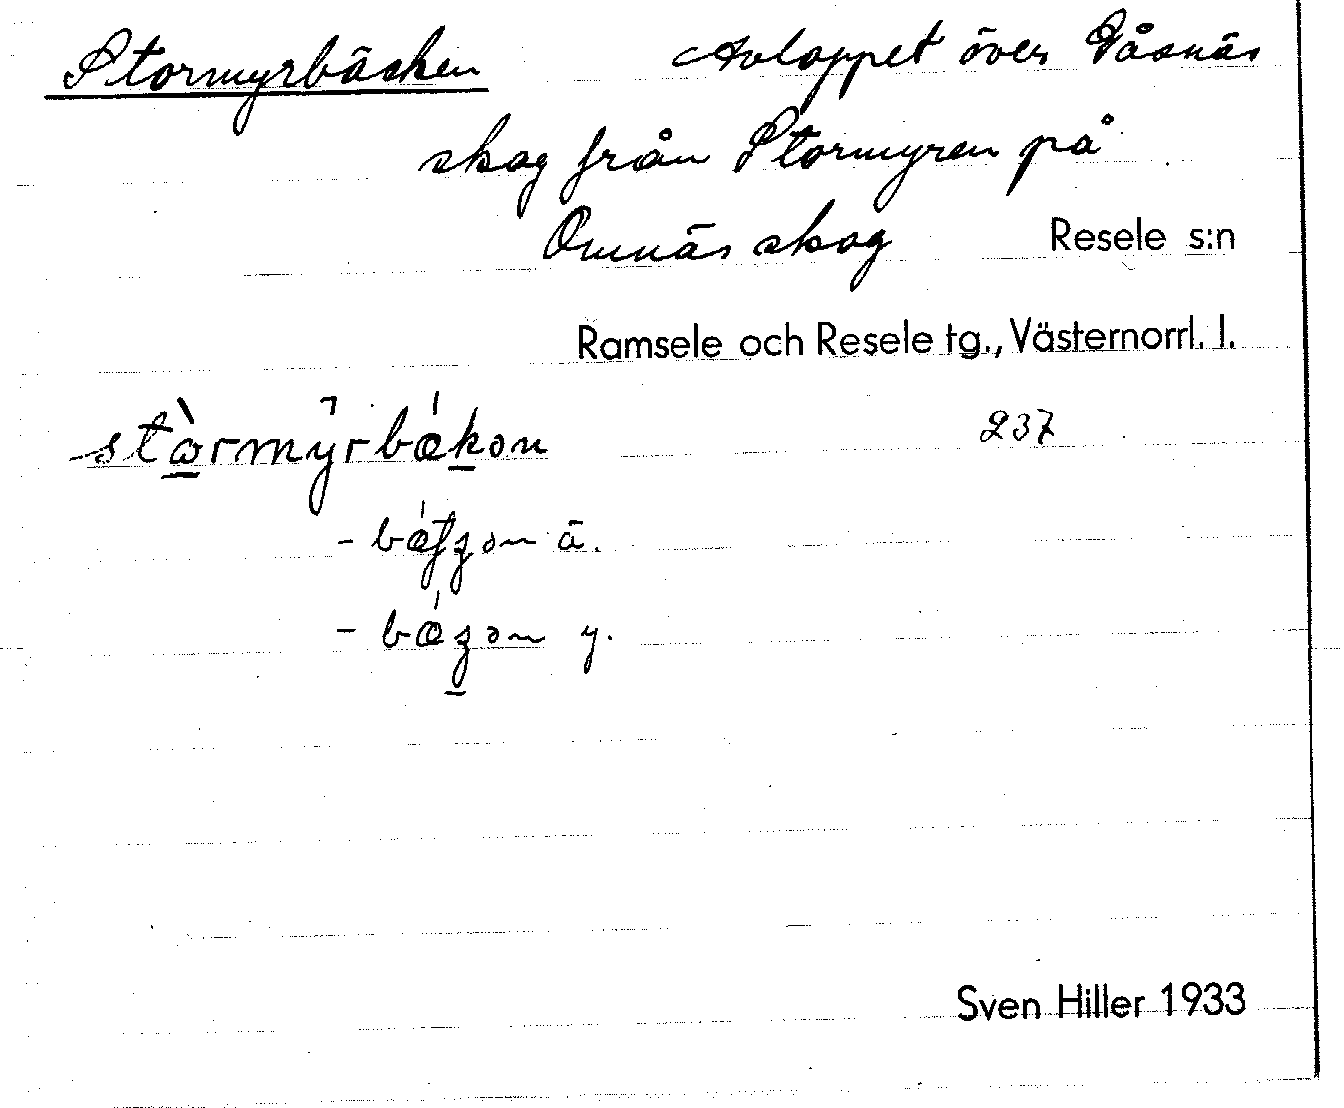 Stormyrbäcken Avloppet över Gåsnäs
skog från Stormyren på
Omnäs skog Resele s:n
Ramsele och Resele tg., Västernorrl. l.
237
ä.
y.
Sven Hiller 1933